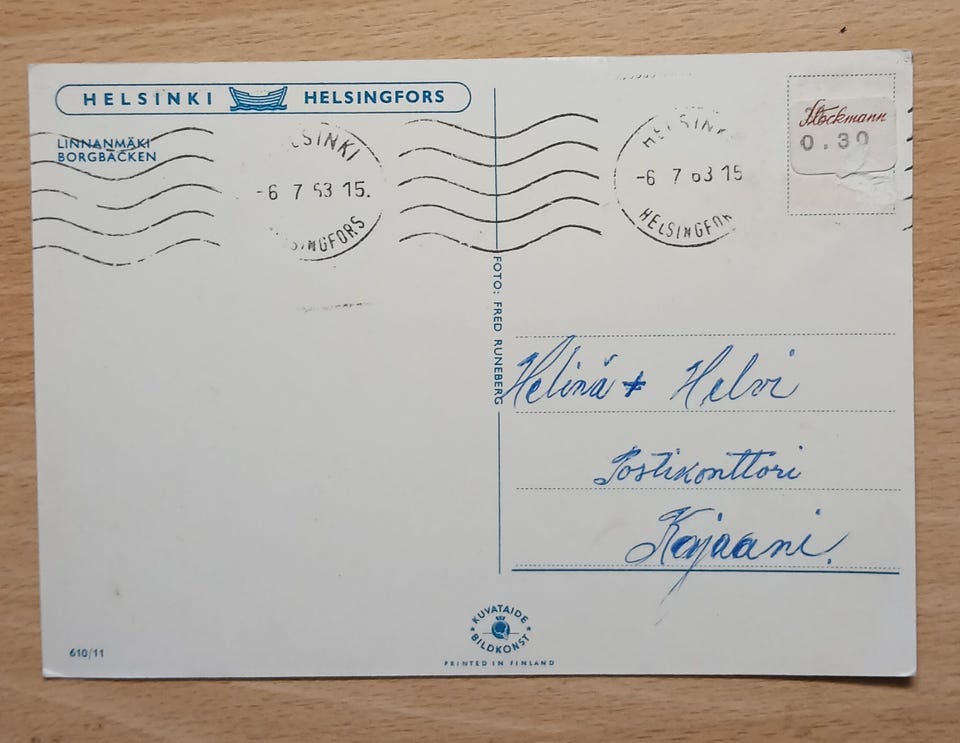 HELSINKI HELSINGFORS
LINNANMÄKI
BORGBACKEN
LSINKI
-6 7 63 15.
SINGFORS
HELSINK
-6 7 63 15
HELSINGFOR
Stockmann
0.30
FOTO: FRED RUNEBERG
Helinä + Helvi
Postikonttori
Kajaani.
KUVATAIDE
BILDKONST
PRINTED IN FINLAND
610/11